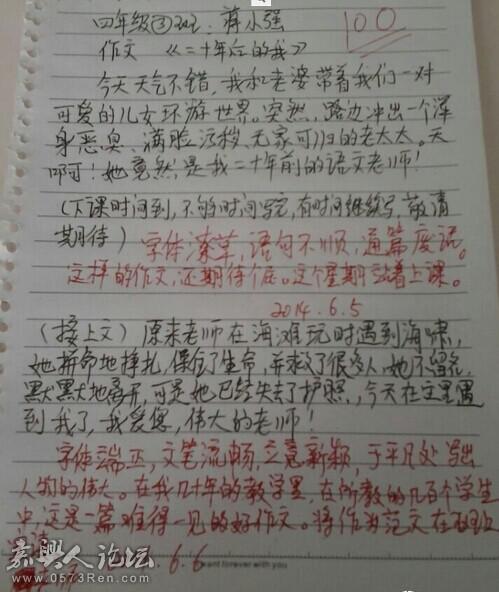 四年级③班：蒋小强
100
作文 《二十年后的我》
今天天气不错，我和老婆带着我们一对
可爱的儿女环游世界。突然，路边冲出一个浑
身恶臭、满脸污秽、无家可归的老太太。天
啊！她竟然是我二十年前的语文老师！
(下课时间到，不够时间写完，有时间继续写，敬请
期待)
字体潦草，语句不顺，通篇废话。
这样的作文，还期待个屁。这个星期站着上课。
2014.6.5
(接上文) 原来老师在海滩玩时遇到海啸，
她拼命地挣扎，保全了生命，并救了很多人，她不留名，
默默地离开，可是她已经失去了护照，今天在这里遇
到我了，我爱您，伟大的老师！
字体端正，文笔流畅，立意新颖，于平凡处写出
人物的伟大。在我几十年的教学里，在所教的几百个学生
中，这是一篇难得一见的好作文。将作为范文在班
6.6
嘉兴人论坛
www.0573Ren.com
want forever with you